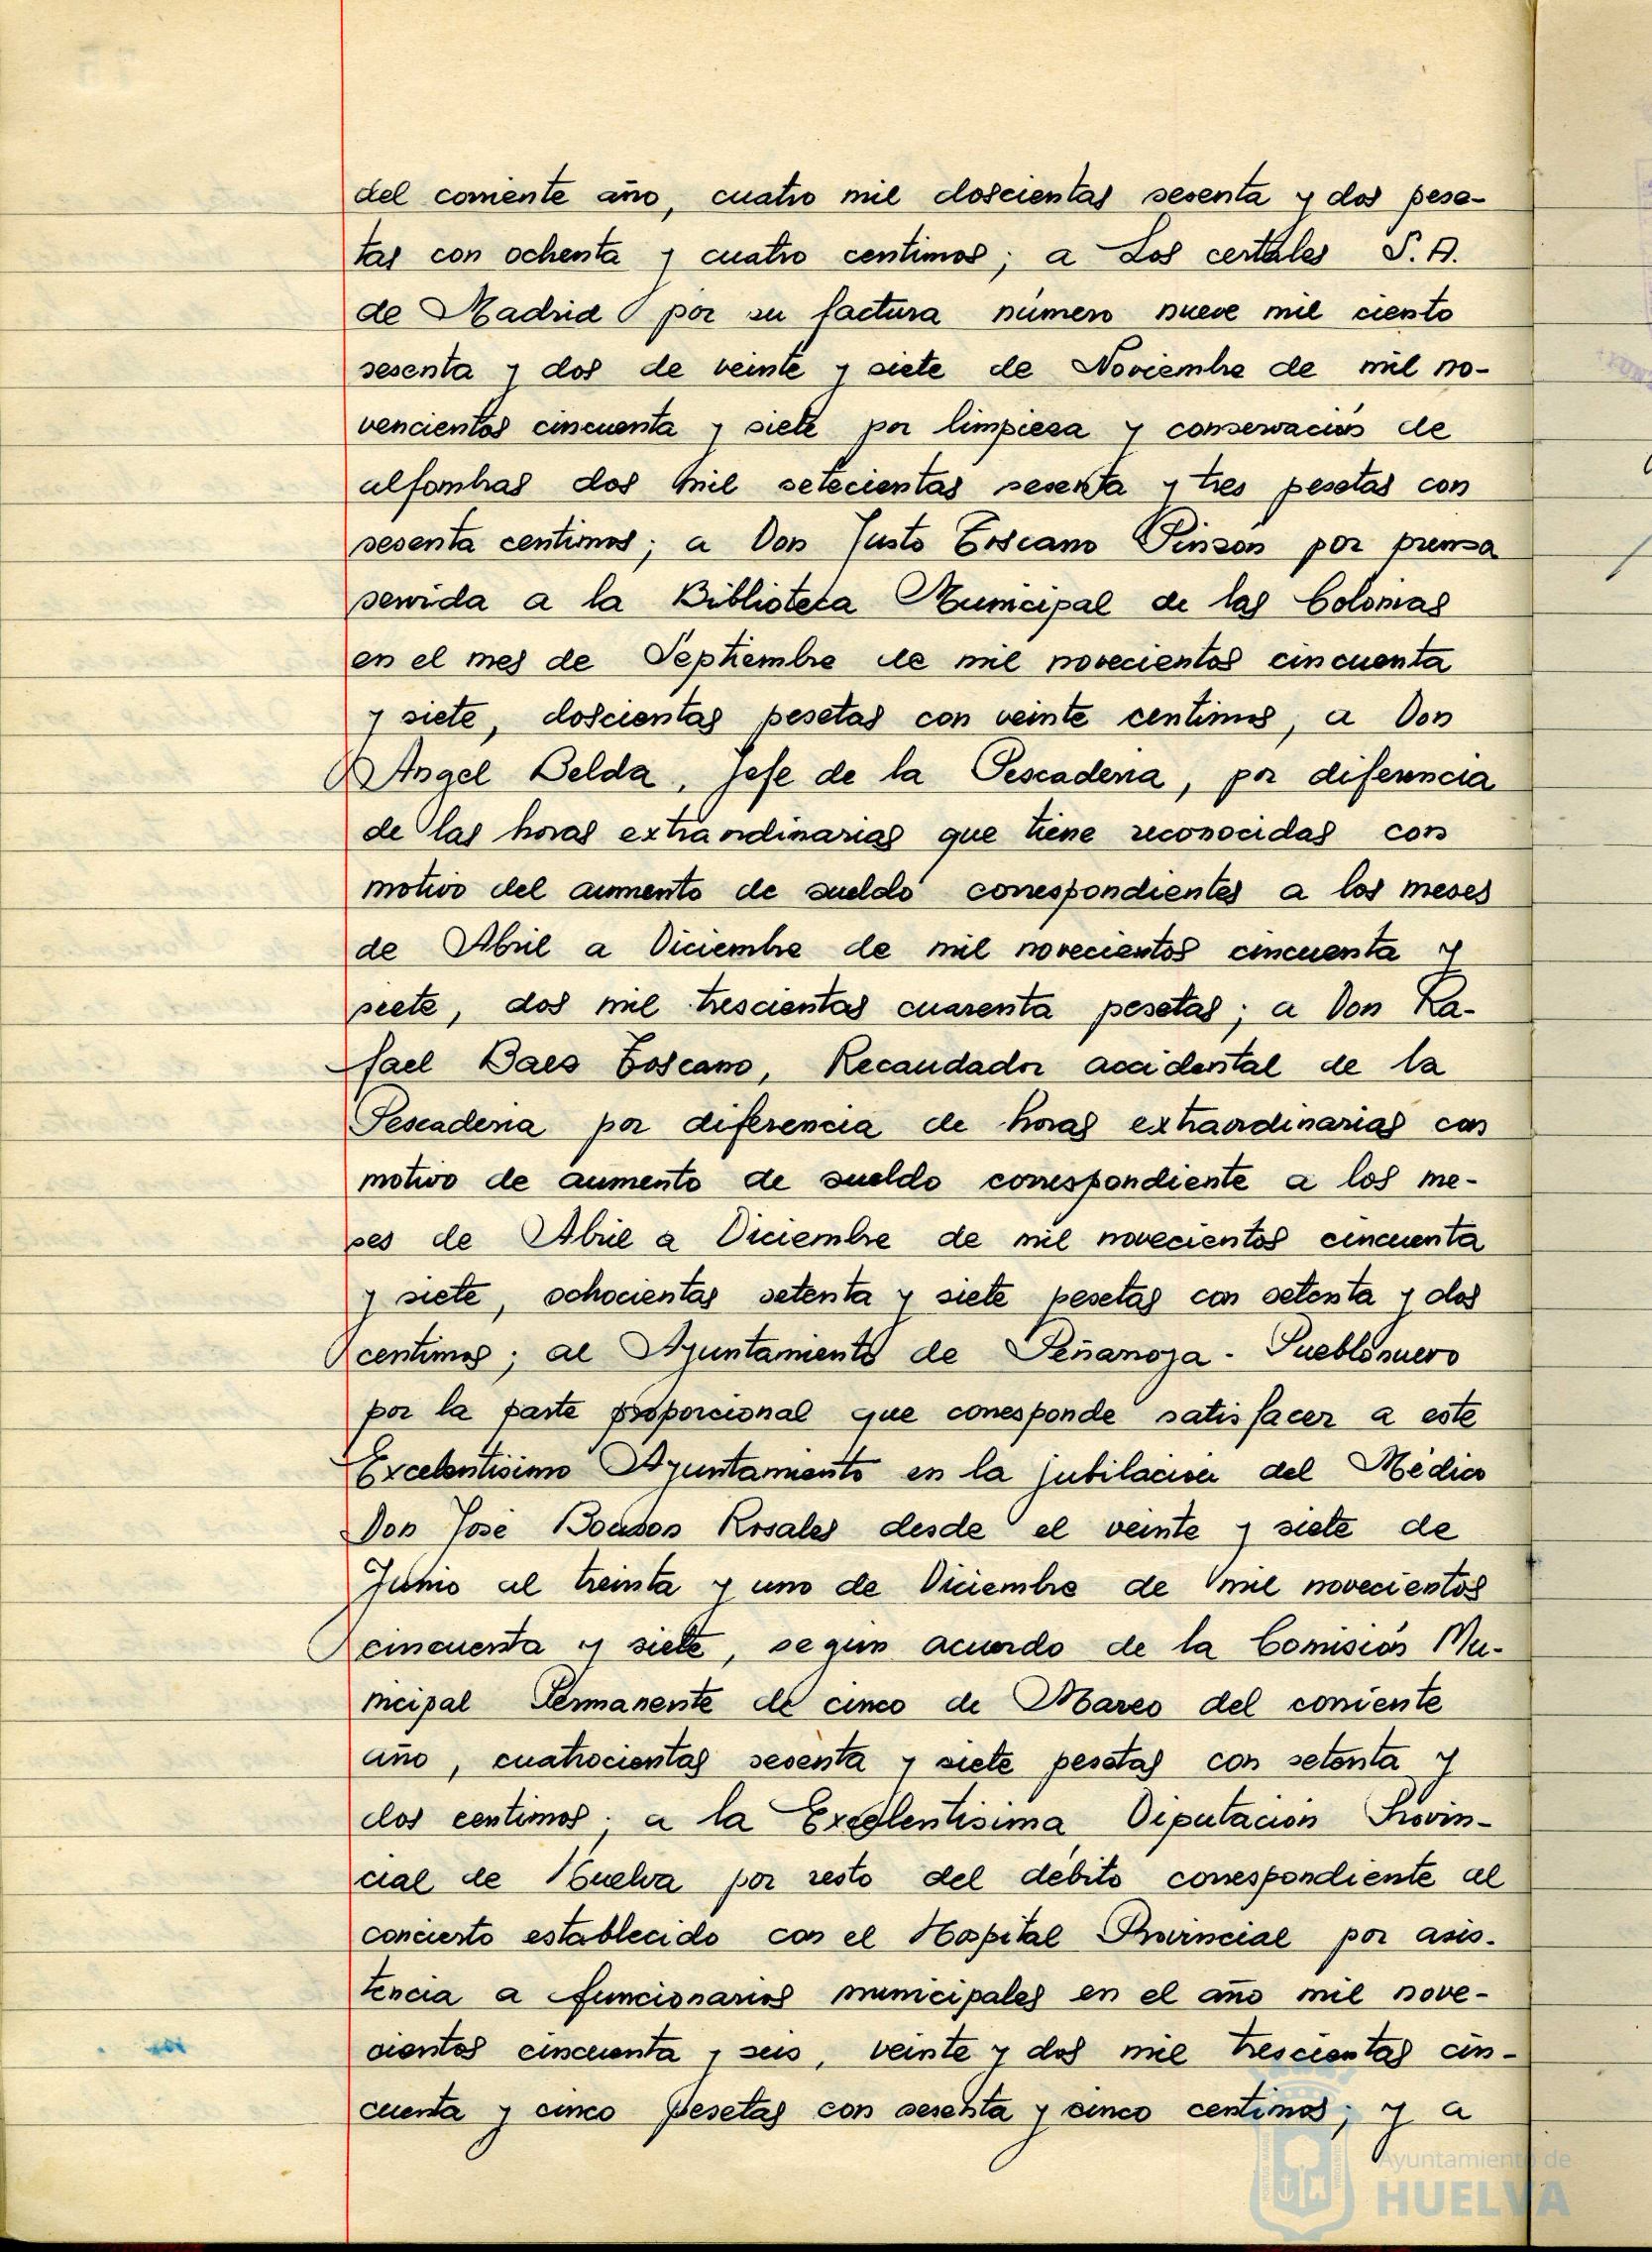 del corriente año, cuatro mil doscientas sesenta y dos pese-
tas con ochenta y cuatro centimos; a Los certales S.A.
de Madrid por su factura número nueve mil ciento
sesenta y dos de veinte y siete de Noviembre de mil no-
vencientos cincuenta y siete por limpieza y conservación de
alfombras dos mil setecientas sesenta y tres pesetas con
sesenta centimos; a Don Justo Toscano Pinzon por prensa
servida a la Biblioteca Municipal de las Colonias
en el mes de Septiembre de mil novecientos cincuenta
y siete, doscientas pesetas con veinte centimos, a Don
Angel Belda, jefe de la Pescaderia, por diferencia
de las horas extraordinarias que tiene reconocidas con
motivo del aumento de sueldo correspondientes a los meses
de Abril a Diciembre de mil novecientos cincuenta y
siete, dos mil trescientas cuarenta pesetas; a Don Ra-
fael Baes Toscano, Recaudador accidental de la
Pescaderia por diferencia de horas extraordinarias con
motivo de aumento de sueldo correspondiente a los me-
ses de Abril a Diciembre de mil novecientos cincuenta
y siete, ochocientas setenta y siete pesetas con setenta y dos
centimos; al Ayuntamiento de Peñarroya - Pueblonuevo
por la parte proporcional que corresponde satisfacer a este
Excelentisimo Ayuntamiento en la jubilacion del Médico
Don José Rosales desde el veinte y siete de
Junio al treinta y uno de Diciembre de mil novecientos
cincuenta y siete, segun acuerdo de la Comisión Mu-
nicipal Permanente de cinco de Marzo del corriente
año, cuatrocientas sesenta y siete pesetas con setenta y
dos centimos; a la Excelentisima Diputación Provin-
cial de Huelva por resto del débito correspondiente al
concierto establecido con el Hospital Provincial por asis-
tencia a funcionarios municipales en el año mil nove-
cientos cincuenta y seis, veinte y dos mil trescientas cin-
cuenta y cinco pesetas con sesenta y cinco centimos; y a
Ayuntamiento de
HUELVA